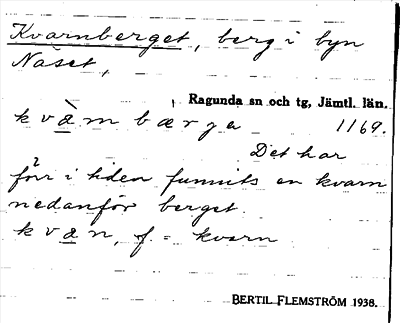 Kvarnberget, berg i byn
Näset,
Ragunda sn och tg, Jämtl. län.
kvàmbærja 1169.
Det har
förr i tiden funnits en kvarn
nedanför berget.
kvan, f. = kvarn
BERTIL FLEMSTRÖM 1938.